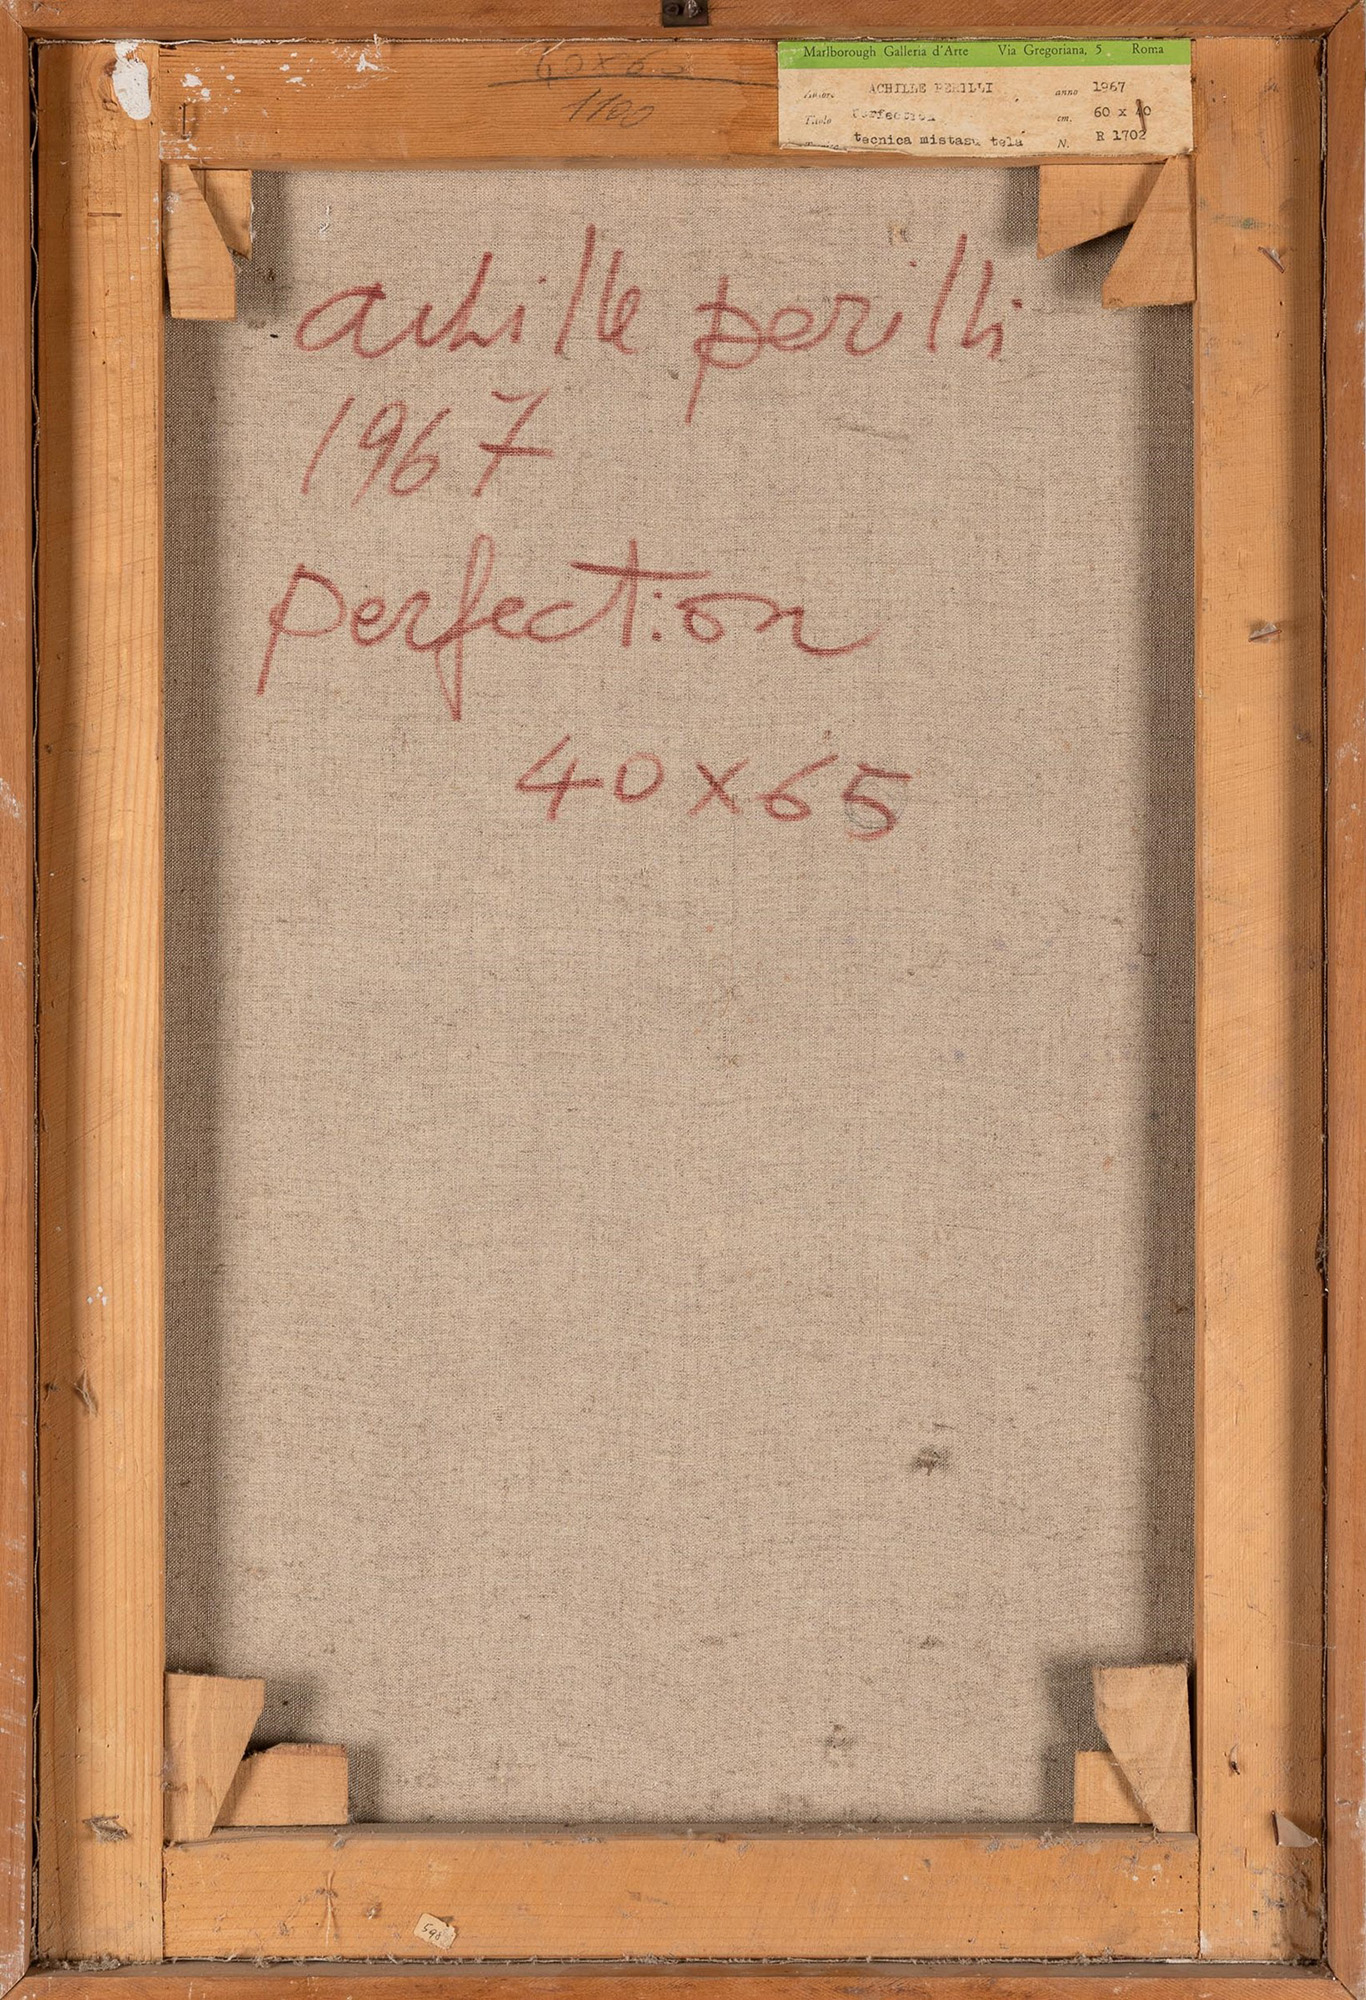 40x65
1100
Marlborough Galleria d'Arte Via Gregoriana, 5 Roma
Autore ACHILLE PERILLI anno 1967
Titolo Perfection cm. 60 x 40
tecnica mistasu tela N. R 1702
achille perilli
1967
perfection
40x65
598